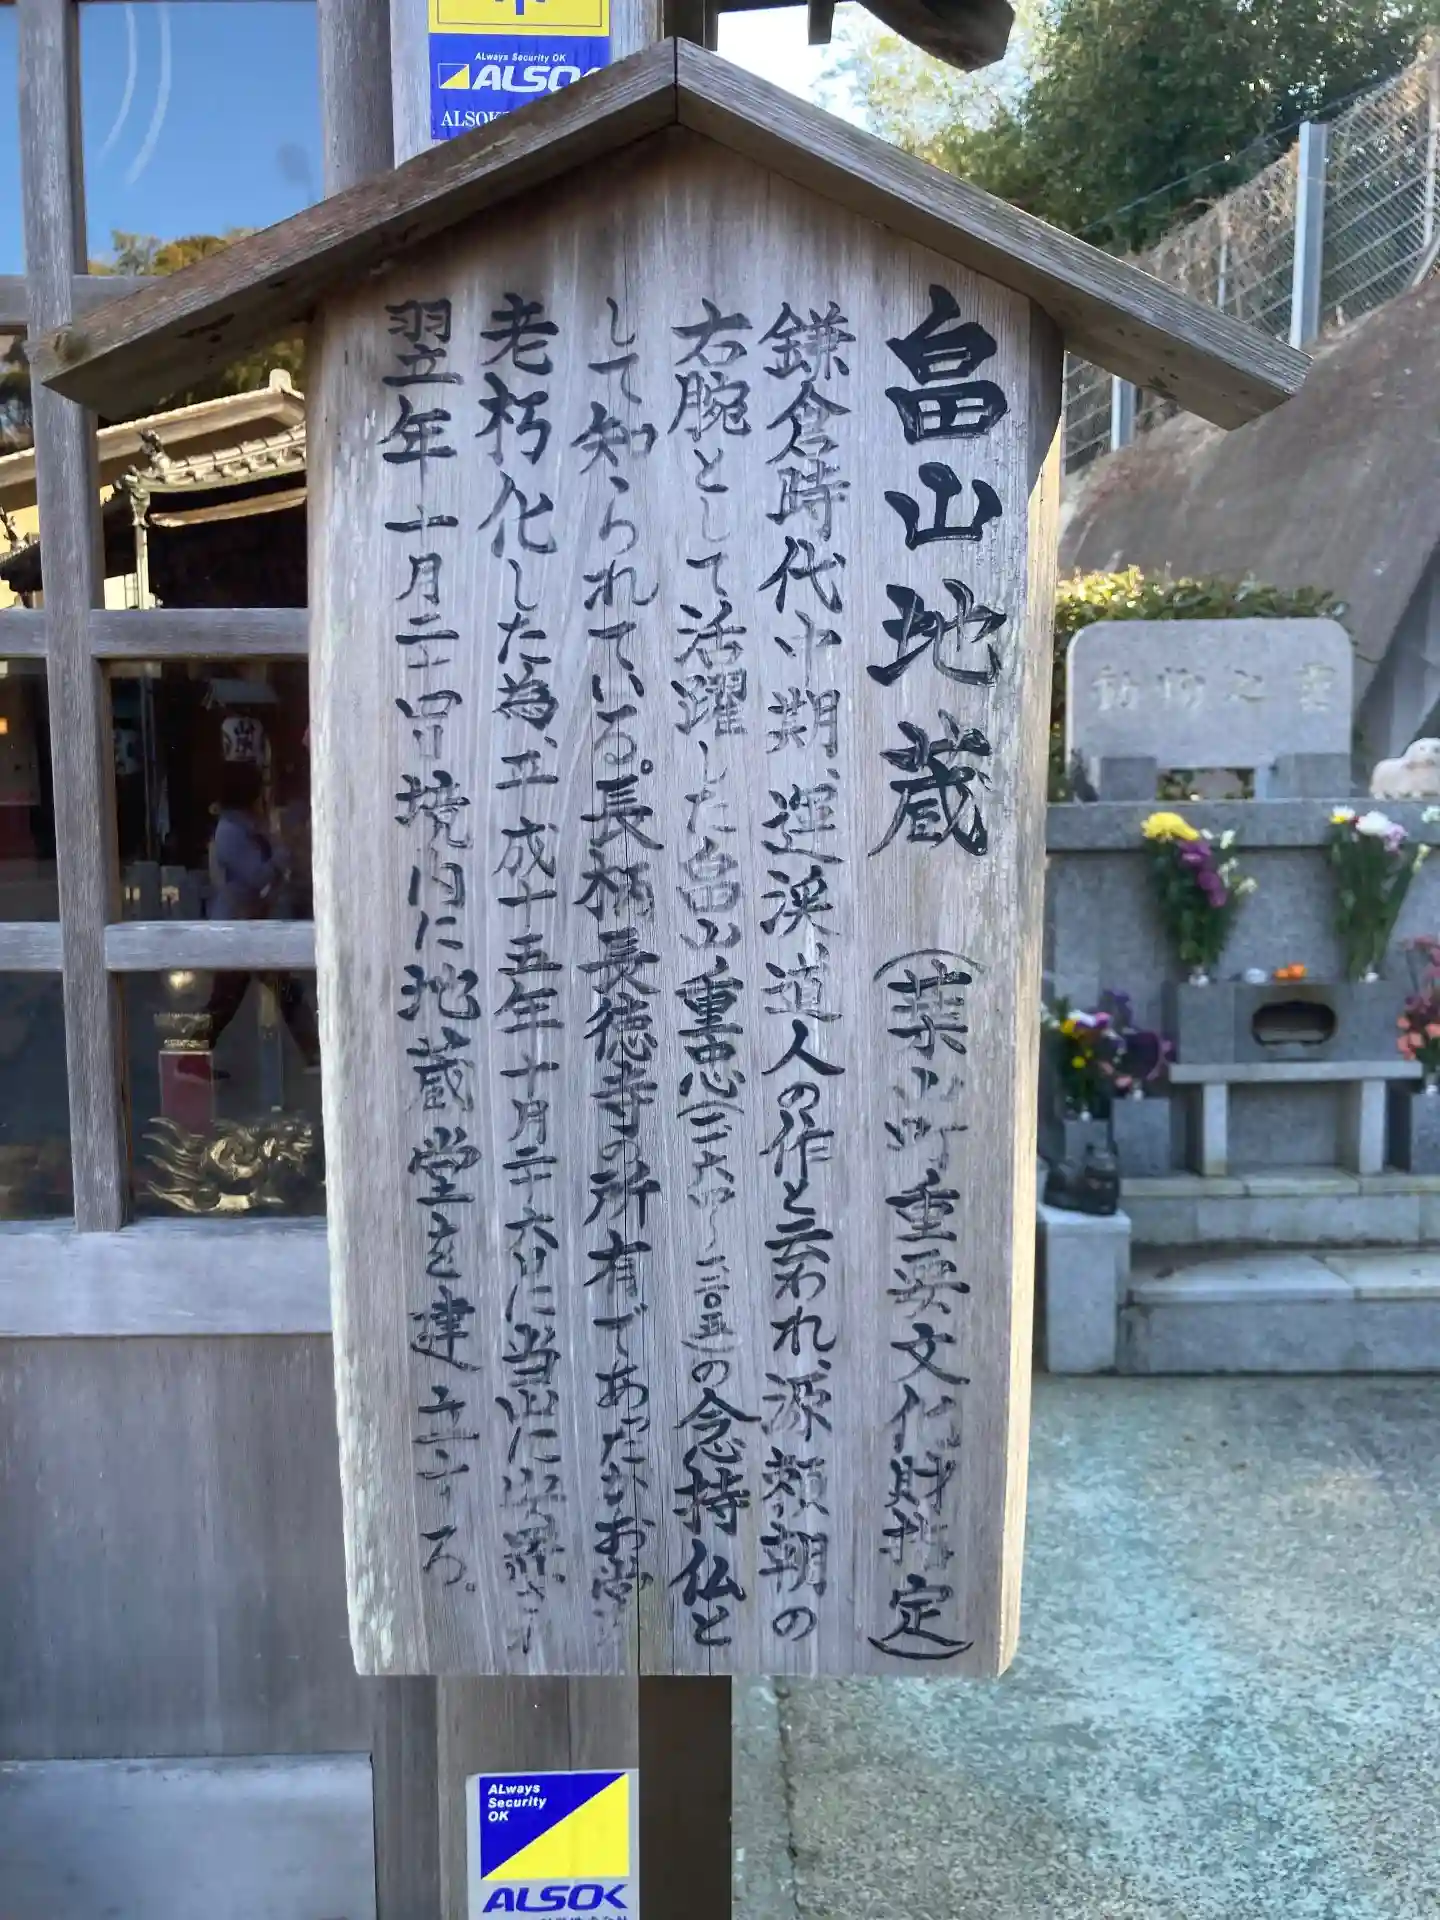 畠山地蔵 (葉山町重要文化財指定)
鎌倉時代中期、運渓道人の作と云われ、源頼朝の
右腕として活躍した畠山重忠(一一六四～一二〇五)の念持仏と
して知られている。長柄長徳寺の所有であったがお堂が
老朽化した為、平成十五年十月二十六日に当山に安置され
翌年十月二十四日境内に地蔵堂を建立する。
ALways Security OK
ALSOK
ALSOK
動物之霊
ALways
Security
OK
ALSOK